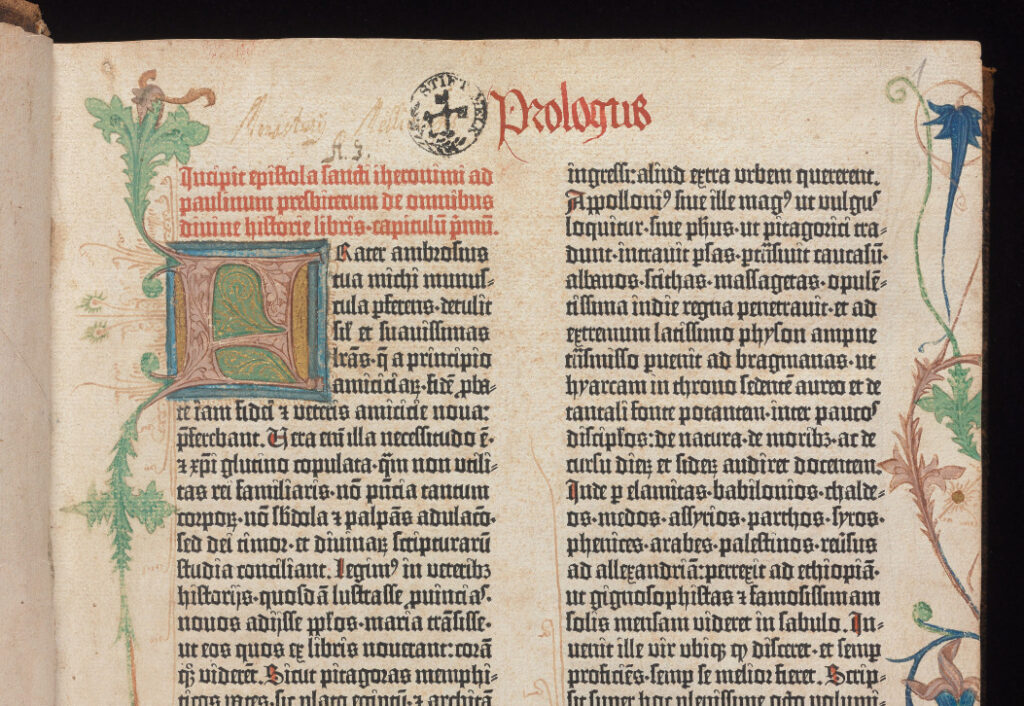 STIFT MELK
Prologus
Incipit epistola sancti iheronimi ad
paulinum presbiterum de omnibus
divine historie libris·capitulū pmū.
Frater ambrosius
tua michi munus-
cula pferens·detulit
sil' et suavissimas
lrās·q̄ a principio
amiciciaꝝ·fidē pba-
te iam fidei ⁊ veteris amicicie nova:
pferebant. Vera eni illa necessitudo ē·
⁊ xpi glutino copulata·qm̄ non utili-
tas rei familiaris·nō pn̄cia tantum
corpoꝝ·nō sbdola ⁊ palpās adulacō·
sed dei timor·et divinaꝝ scripturarū
studia conciliant. Legimꝰ in veteribꝫ
historijs·quosdā lustrasse ꝓuinciaſ·
novos adijsse pplos·maria trāsisse·
ut eos quos ex libris noverant: corā
qꝫ viderēt. Sicut pitagoras memphi-
ticos vates·sic plato egiptū·⁊ architā
ingressi: aliud extra urbem quererent.
Appolloniꝰ sive ille magꝰ ut vulguſ
loquitur·sive phus·ut pitagorici tra-
dunt·intravit psas·ptrāsiuit caucasū·
albanos·scithas·massagetas·opulē-
tissima indie regna penetravit·et ad
extremum latissimo physon ampne
tn̄smisso pvenit ad bragmanas·ut
hyarcam in throno sedentē aureo et de
tantali fonte potantem·inter paucoſ
disciplos: de natura·de moribꝫ ac de
cursu dieꝝ et sideꝝ audiret docentem.
Inde p elamitas·babilonios·chalde-
os·medos·assyrios·parthos·syros·
phenices·arabes·palestinos·reūsus
ad allexandriā: perrexit ad ethiopiā·
ut gignosophistas ⁊ famosissimam
solis mensam videret in sabulo. In-
venit ille vir ubiqꝫ qꝫ disceret·et semp
proficiēs·semp se melior fieret. Scrip-
sit super hoc plenissime octo volumi-